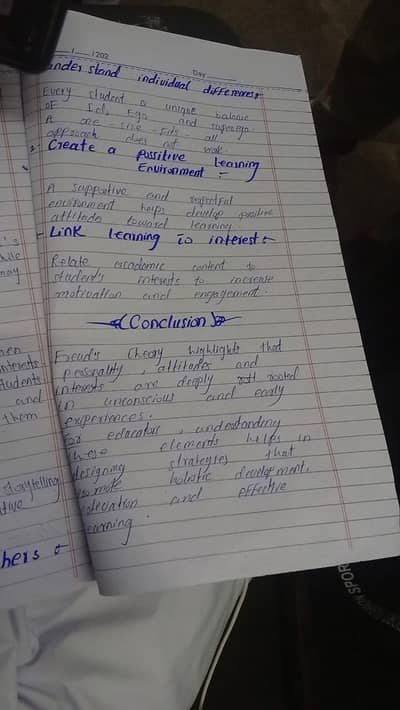 / /202
Day
understand individual differences:
Every student a unique balance
of Id, Ego and superego.
A one-size-fits-all
approach does not work.
Create a Possitive learning
Environment :-
A supportive and respectful
environment helps develop positive
attitude toward learning
- Link learning to interest :-
Relate academic content to
student's interests to increase
motivation and engagement.
(Conclusion)
Freud's theory highlights that
personality, attitudes and
interests are deeply rooted
in unconscious and early
experiences.
For educators, understanding
these elements helps in
designing strategies that
promote holistic development,
and effective
learning.
's
while
may
interests
students
and
them
storytelling
hers :-